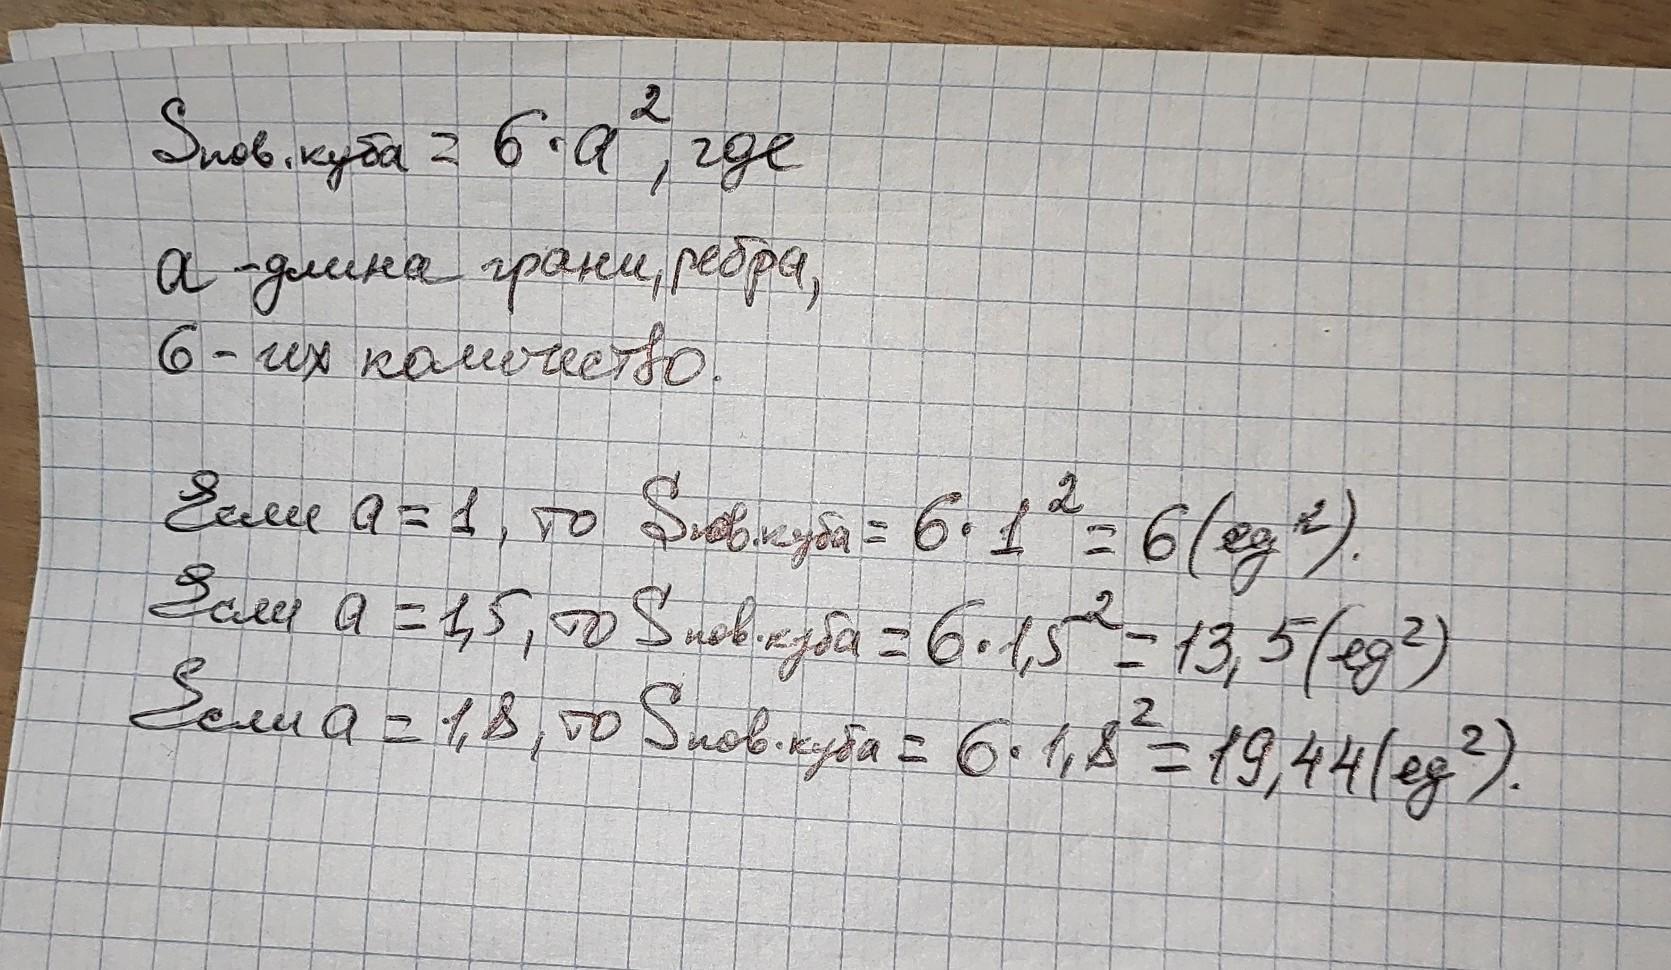 Sпов.куба = 6·a², где
a - длина грани, ребра,
6 - их количество.
Если a = 1, то Sпов.куба = 6·1² = 6 (ед²).
Если a = 1,5, то Sпов.куба = 6·1,5² = 13,5 (ед²)
Если a = 1,8, то Sпов.куба = 6·1,8² = 19,44 (ед²).